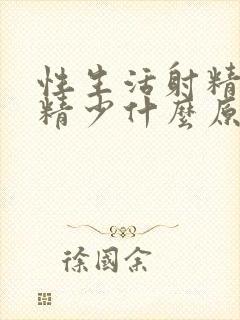 性生活射精
精少什麼原
徐國余